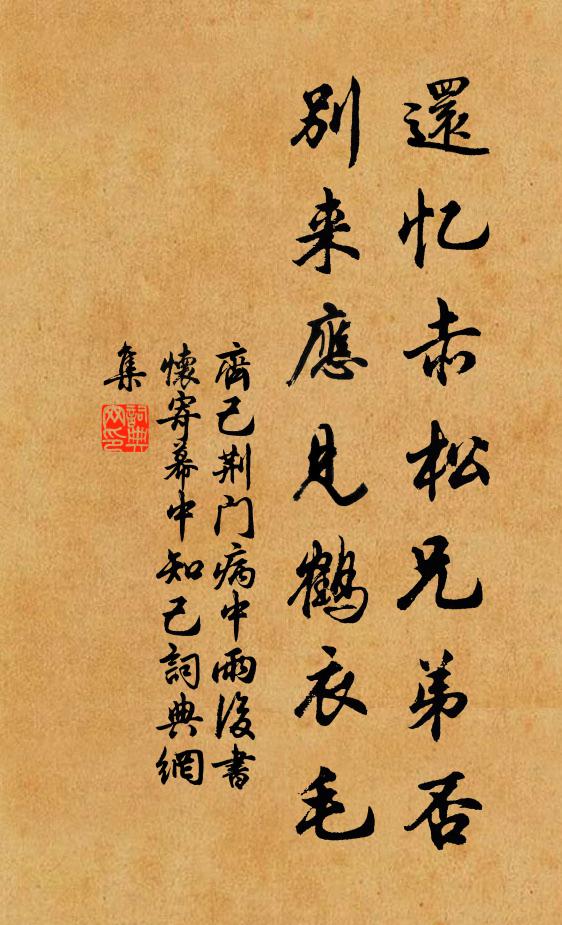 還忆赤松兄弟否
別来應見鶴衣毛
齊己荆门病中雨後書
懷寄幕中知己詞典網
集
詞典
网印